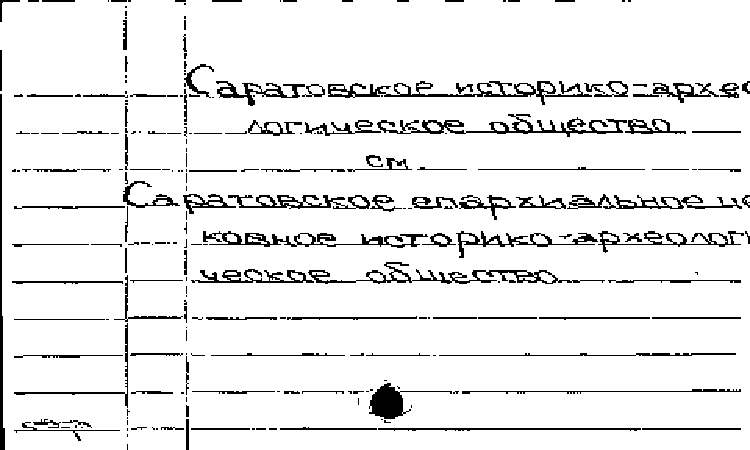 Саратовское историко-архео
логическое общество
см.
Саратовское епархиальное це
ковное историко-археологи
ческое общество